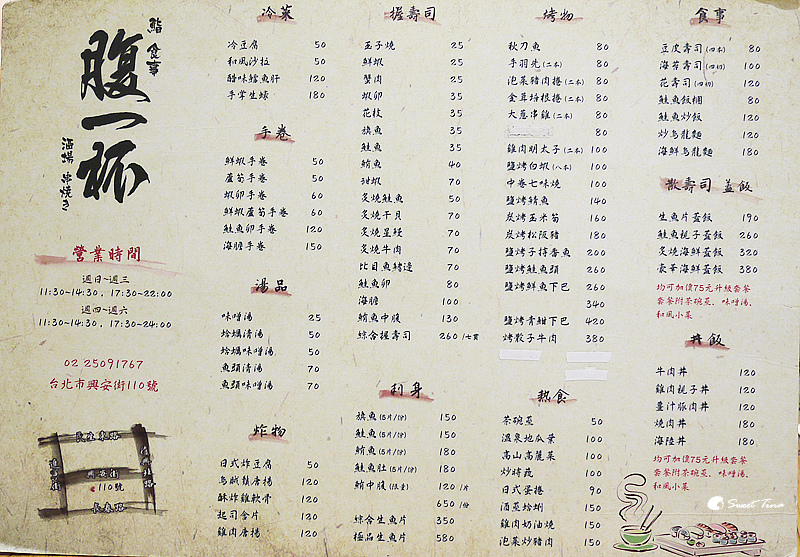 鮨 食事
腹一杯
酒場 串焼き
營業時間
週日~週三
11:30~14:30 , 17:30~22:00
週四~週六
11:30~14:30 , 17:30~24:00
02 25091767
台北市興安街110號
長春路
興安街
110號
冷菜
冷豆腐 50
和風沙拉 50
醋味鱈魚肝 120
手掌生蠔 180
手卷
鮮蝦手卷 50
蘆筍手卷 50
蝦卵手卷 60
鮮蝦蘆筍手卷 60
鮭魚卵手卷 120
海膽手卷 150
湯品
味噌湯 25
蛤蠣清湯 50
蛤蠣味噌湯 50
魚頭清湯 70
魚頭味噌湯 70
炸物
日式炸豆腐 50
烏賊鬚唐揚 120
酥炸雞軟骨 120
起司合片 120
雞肉唐揚 120
握壽司
玉子燒 25
鮮蝦 25
蟹肉 25
蝦卵 35
花枝 35
旗魚 35
鮭魚 35
鮪魚 40
甜蝦 70
炙燒鮭魚 50
炙燒干貝 70
炙燒星鰻 70
炙燒牛肉 70
比目魚鰭邊 70
鮭魚卵 80
海膽 100
鮪魚中腹 130
綜合握壽司 260 /七貫
刺身
旗魚(5片/份) 150
鮭魚(5片/份) 150
鮪魚(5片/份) 180
鮭魚肚(5片/份) 180
鮪魚中腹(限量) 120 /片
650 /份
綜合生魚片 350
極品生魚片 580
烤物
秋刀魚 80
手羽先(二本) 80
泡菜豬肉捲(二本) 80
金茸培根捲(二本) 80
大蔥串雞(二本) 80
80
雞肉明太子(二本) 100
鹽烤白蝦(八本) 100
中卷七味燒 100
鹽烤鯖魚 140
炭烤玉米筍 160
炭烤松阪豬 180
鹽烤子持香魚 200
鹽烤鮭魚頭 260
鹽烤鮮魚下巴 260
340
鹽烤青魽下巴 420
烤骰子牛肉 380
熱食
茶碗蒸 50
溫泉地瓜葉 100
高山高麗菜 100
炒時蔬 100
日式蛋捲 90
酒蒸蛤蜊 150
雞肉奶油燒 150
泡菜炒豬肉 150
食事
豆皮壽司(四本) 80
海苔壽司(四切) 100
花壽司(四切) 120
鮭魚飯糰 80
鮭魚炒飯 120
炒烏龍麵 120
海鮮烏龍麵 180
散壽司 蓋飯
生魚片蓋飯 190
鮭魚親子蓋飯 260
炙燒海鮮蓋飯 320
豪華海鮮蓋飯 380
均可加價75元升級套餐
套餐附茶碗蒸、味噌湯、
和風小菜
丼飯
牛肉丼 120
雞肉親子丼 120
薑汁豚肉丼 120
燒肉丼 180
海陸丼 180
均可加價75元升級套餐
套餐附茶碗蒸、味噌湯、
和風小菜
Sweet Tina